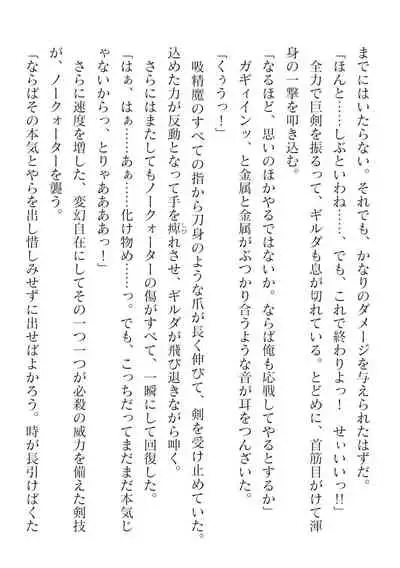 までにはいたらない。それでも、かなりのダメージを与えられたはずだ。
「ほんと……しぶといわね……、でも、これで終わりよっ！　せぃいいっ!!」
　全力で巨剣を振るって、ギルダも息が切れている。とどめに、首筋目がけて渾
身の一撃を叩き込む。
「なるほど、思いのほかやるではないか。ならば俺も応戦してやるとするか」
　ガギィインッ、と金属と金属がぶつかり合うような音が耳をつんざいた。
「くぅうっ！」
　吸精魔のすべての指から刀身のような爪が長く伸びて、剣を受け止めていた。
込めた力が反動となって手を痺れさせ、ギルダが飛び退きながら呻く。
　さらにはまたしてもノークォーターの傷がすべて、一瞬にして回復した。
「はぁ、はぁ……あぁ……化け物め……っ。でも、こっちだってまだまだ本気じ
ゃないからっ、とりゃああああっ！」
　さらに速度を増した、変幻自在にしてその一つ一つが必殺の威力を備えた剣技
が、ノークォーターを襲う。
「ならばその本気とやらを出し惜しみせずに出せばよかろう。時が長引けばくた